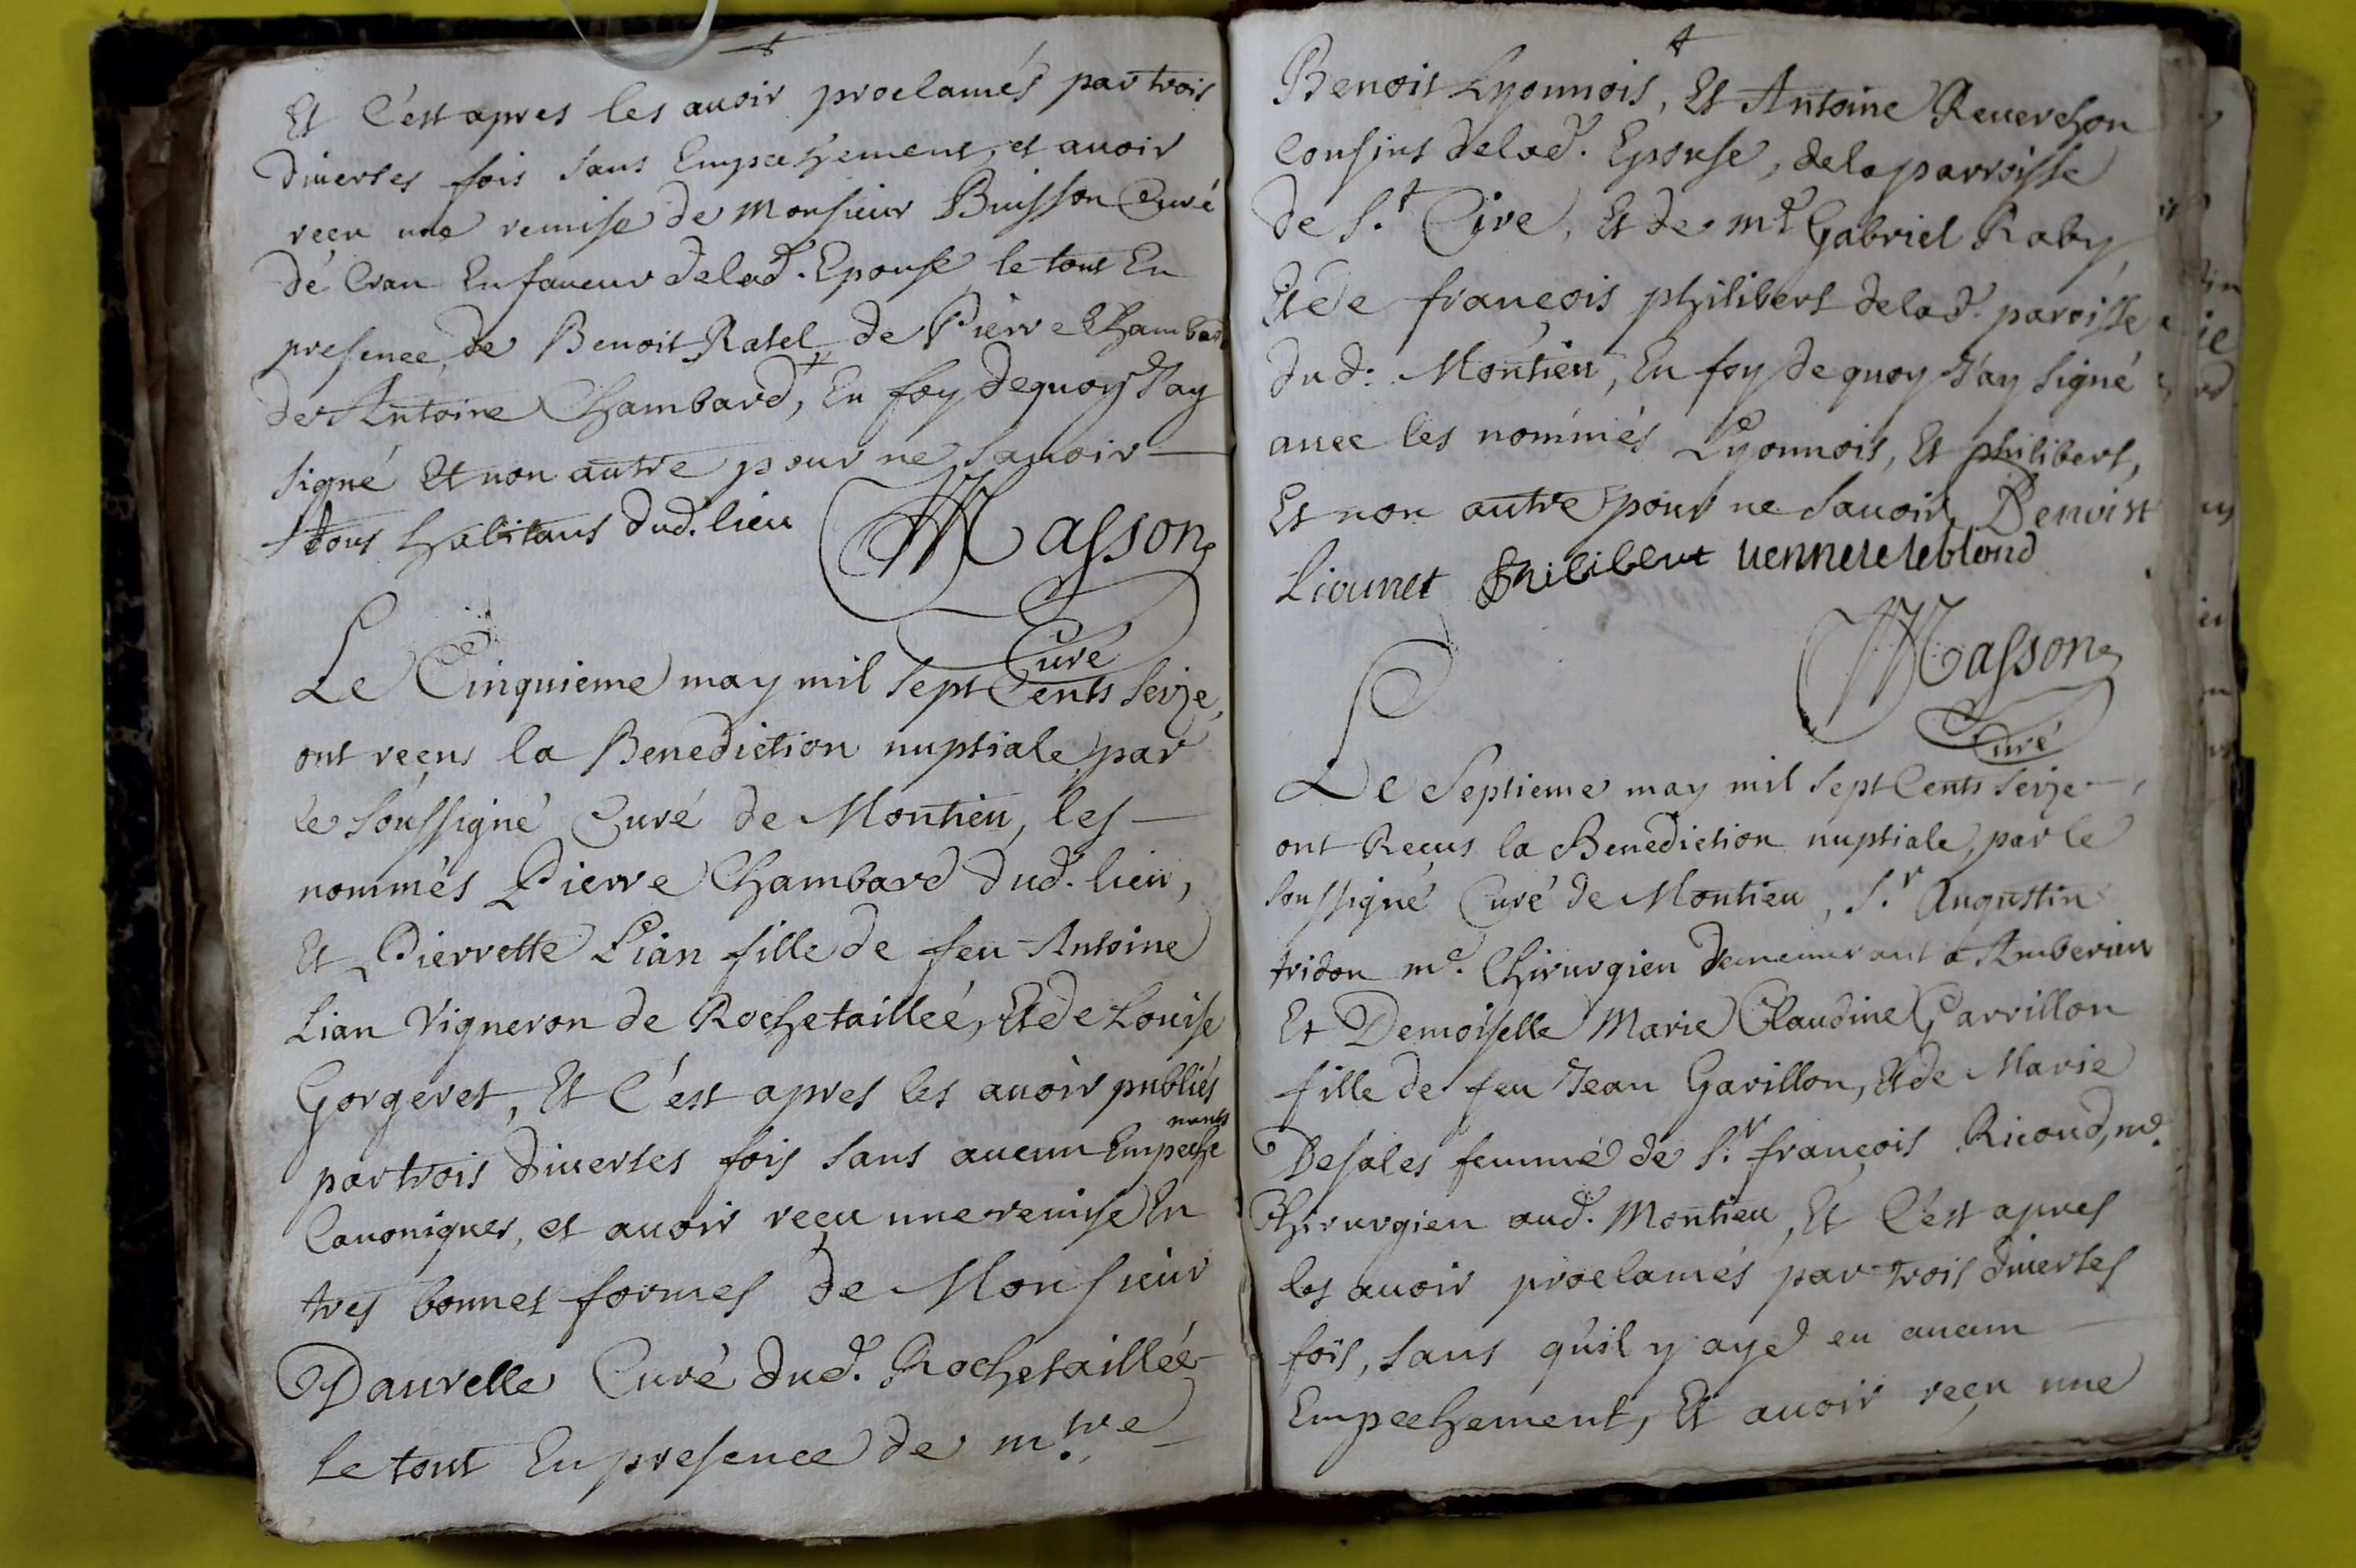 Et C'est apres les auoir proclamés par trois
diuerses fois sans Empeschement, et auoir
reçu une remise de Monsieur Buisson Curé
de Cran En faueur de lad. Epouse le tout En
presence, de Benoit Ratel + de Pierre Chambard
de Antoine Chambard, En foy de quoy J'ay
signé Et non autre pour ne sauoir —
+ tous habitans dud. lieu Masson
Curé
Le Cinquieme may mil sept Cents seize,
ont reçus la Benediction nuptiale, par
le soussigné Curé de Montieu, les —
nommés Pierre Chambard dud. lieu,
Et Pierrette Lian fille de feu Antoine
Lian Vigneron de Rochetailleé, Et de Louise
Gorgeret, Et C'est apres les auoir publiés
par trois diuerses fois sans aucun Empeche
ments
Canoniques, et auoir reçu une remise En
tres bonnes formes de Monsieur
Daurelle Curé dud. Rochetailleé
Le tout En presence de m.re
Benoit Lyonnois, Et Antoine Reuerchon
Cousins de lad. Epouse, de la parroisse
de S.t Cire, Et de m.e Gabriel Raby,
Et de françois philibert de lad. paroisse
dud. Montieu, En foy de quoy J'ay signé
auec les nommés Lyonnois, Et philibert,
Et non autre pour ne sauoir, Benoist
Liounet Philibert uennere leblond
Masson
Curé
Le Septieme may mil sept Cents seize —,
ont Reçus la Benediction nuptiale, par le
soussigné Curé de Montieu, S.r Augustin
tridon m.e Chirurgien demeurant a Amberieu
Et Demoiselle Marie Claudine Garrillon
fille de feu Jean Garillon, Et de Marie
Desales femme de S.r françois Ricoud, m.e
Chirurgien aud. Montieu, Et C'est apres
les auoir proclamés par trois diuerses
fois, sans qu'il y aye eu aucun —
Empechement, Et auoir reçu une